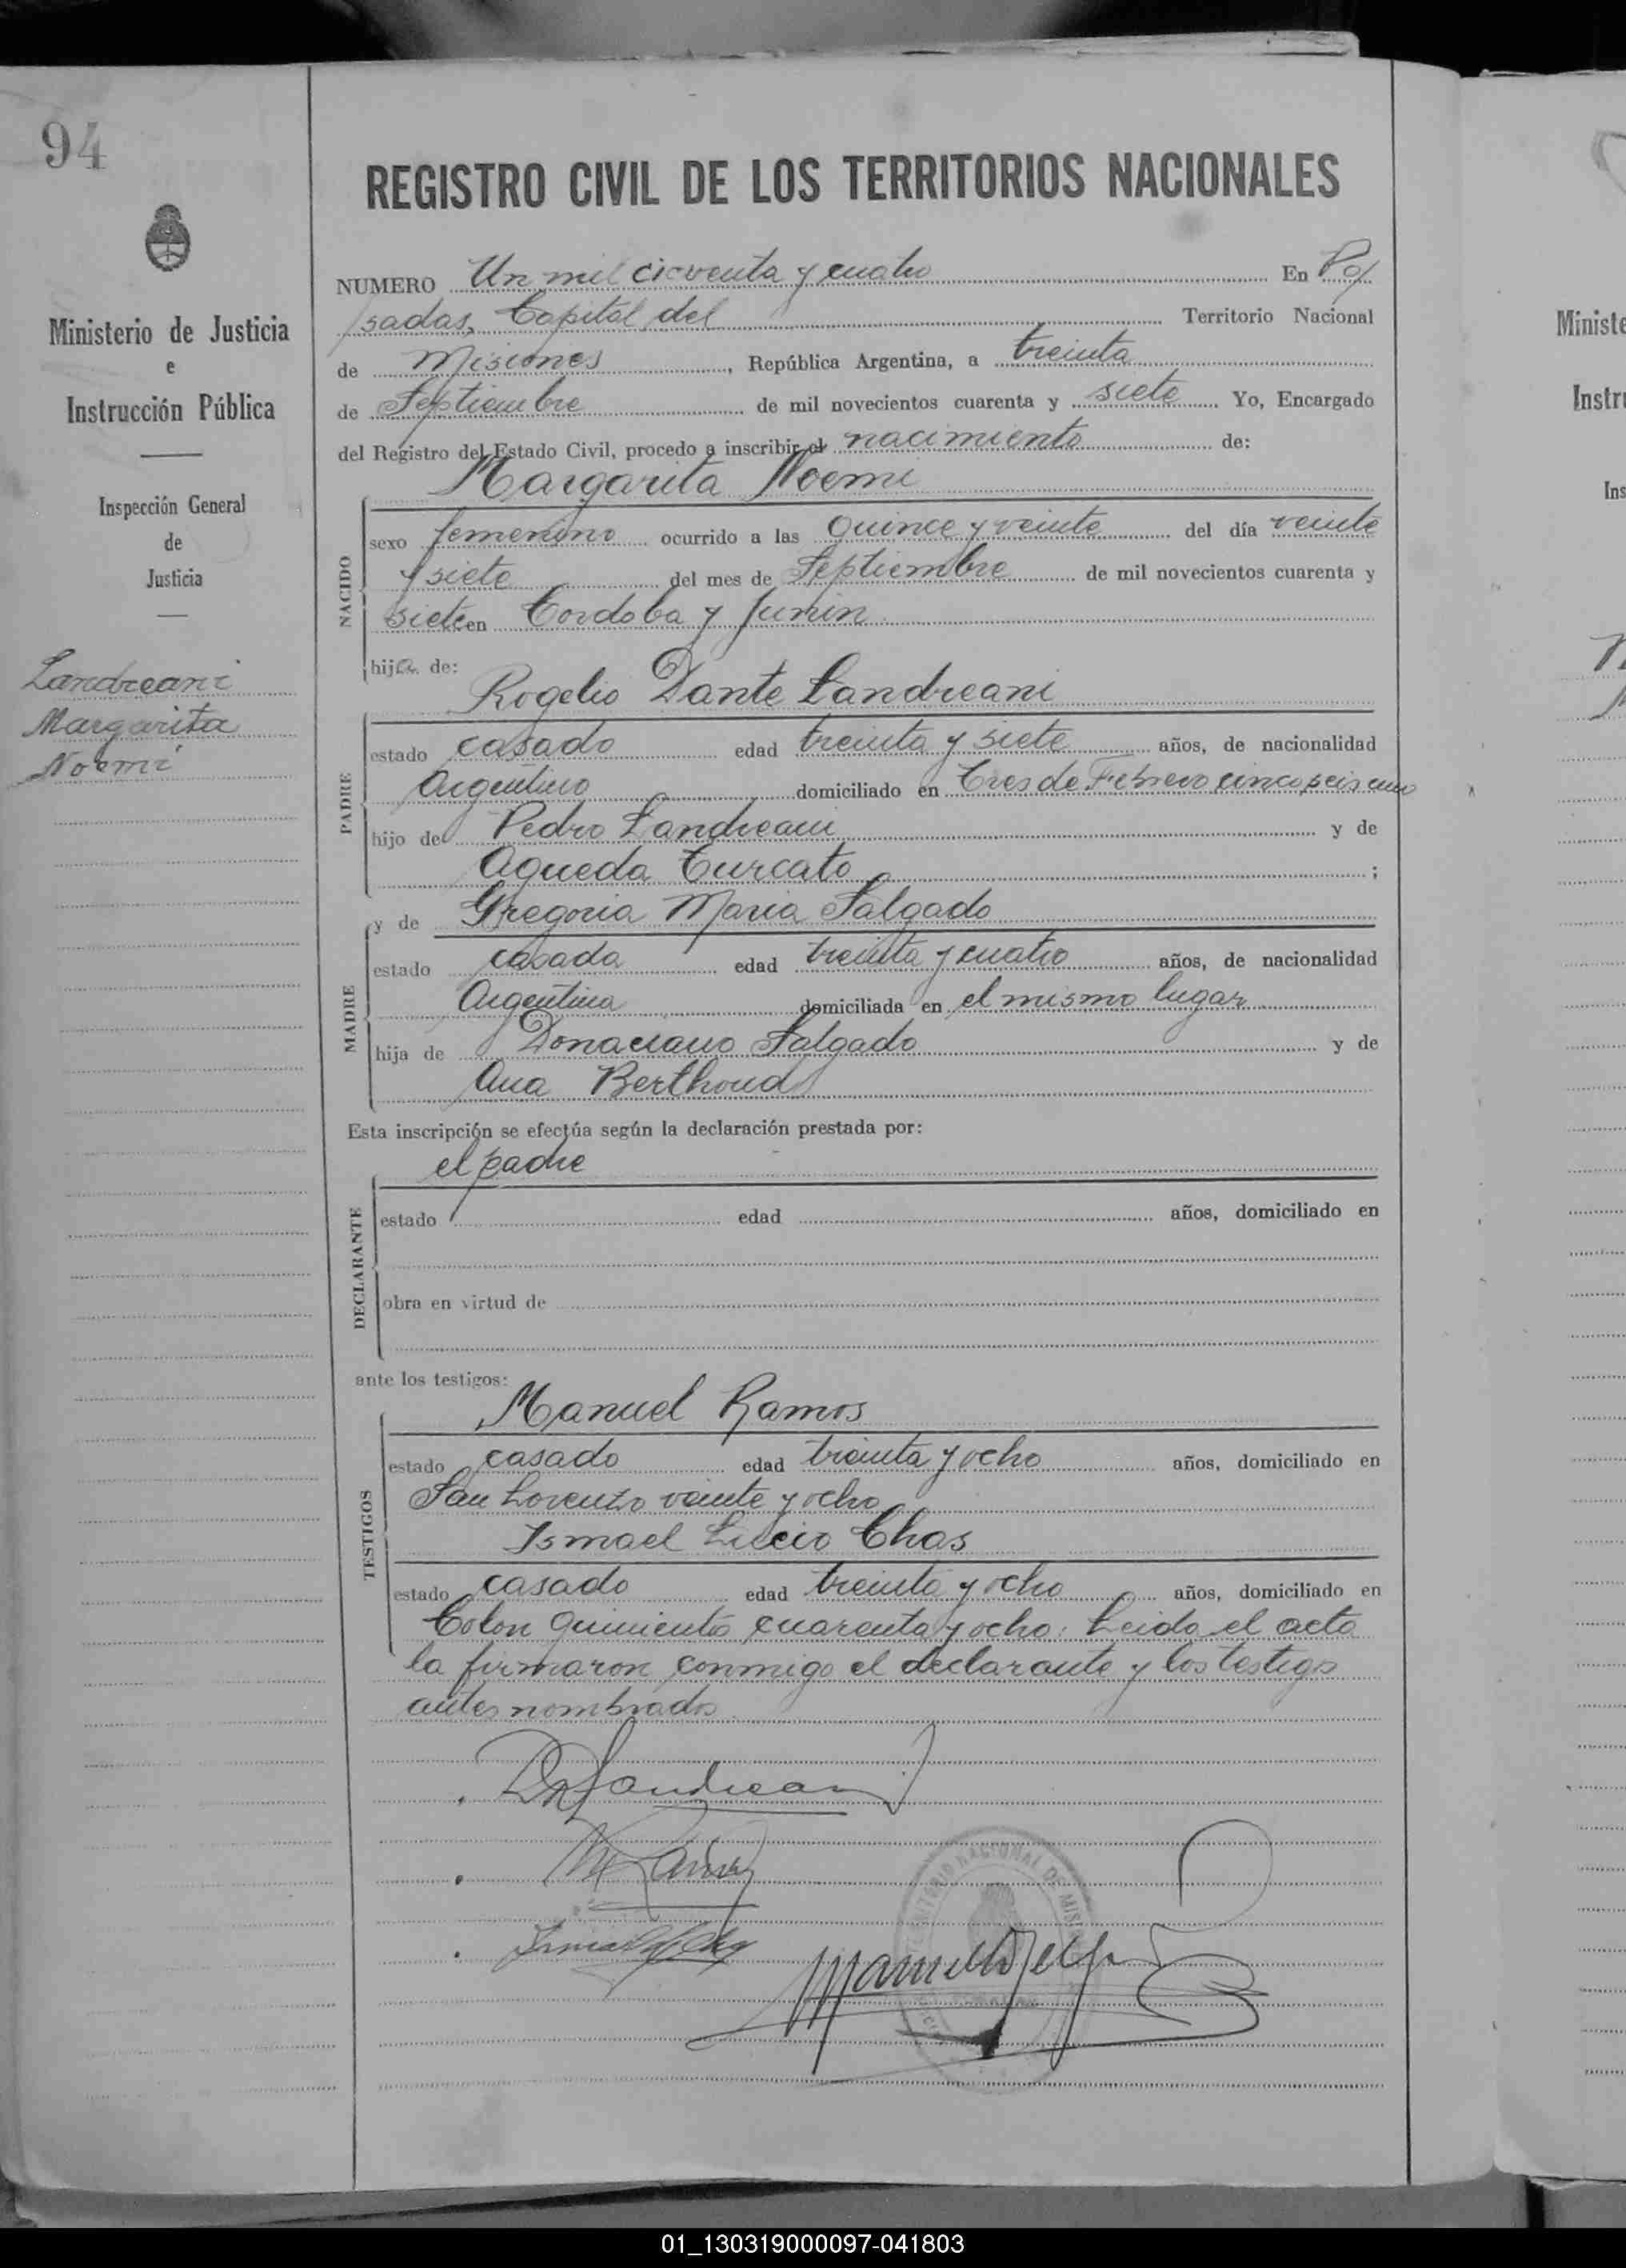 94
Ministerio de Justicia
e
Instrucción Pública
Inspección General
de
Justicia
Landreani
Margarita
Noemi
REGISTRO CIVIL DE LOS TERRITORIOS NACIONALES
NUMERO Un mil cicuenta y cuatro En Po/
/sadas, Capital del Territorio Nacional
de Misiones, República Argentina, a treinta
de Septiembre de mil novecientos cuarenta y siete Yo, Encargado
del Registro del Estado Civil, procedo a inscribir el nacimiento de:
Margarita Noemi
NACIDO
sexo femenino ocurrido a las Quince y veinte del día veinte
y siete del mes de Septiembre de mil novecientos cuarenta y
siete en Cordoba y Junin
hija de:
Rogelio Dante Landreani
PADRE
estado casado edad treinta y siete años, de nacionalidad
Argentino domiciliado en Tres de Febrero cinco seis
hijo de Pedro Landreani y de
Agueda Turcato ;
y de Gregoria Maria Salgado
MADRE
estado casada edad treinta y cuatro años, de nacionalidad
Argentina domiciliada en el mismo lugar
hija de Donaciano Salgado y de
Ana Berthoud
Esta inscripción se efectúa según la declaración prestada por:
el padre
DECLARANTE
estado edad años, domiciliado en
obra en virtud de
ante los testigos:
Manuel Ramos
TESTIGOS
estado casado edad treinta y ocho años, domiciliado en
San Lorenzo veinte y ocho
Ismael Lucio Chas
estado casado edad treinta y ocho años, domiciliado en
Colon quinientos cuarenta y ocho. Leida el acta
la firmaron conmigo el declarante y los testigos
antes nombrados
Landreani
TERRITORIO NACIONAL DE MISIONES
Ministe
Instru
Ins
01_130319000097-041803